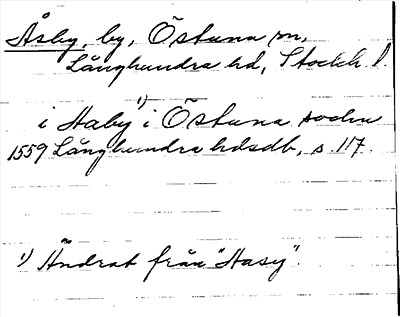 Åsby, by, Östuna sn,
Långhundra hd, Stockh. l.
i Haby ¹) i Östuna sochn
1559 Långhundra hdsdb, s. 117.
¹) Ändrat från "Hasy".